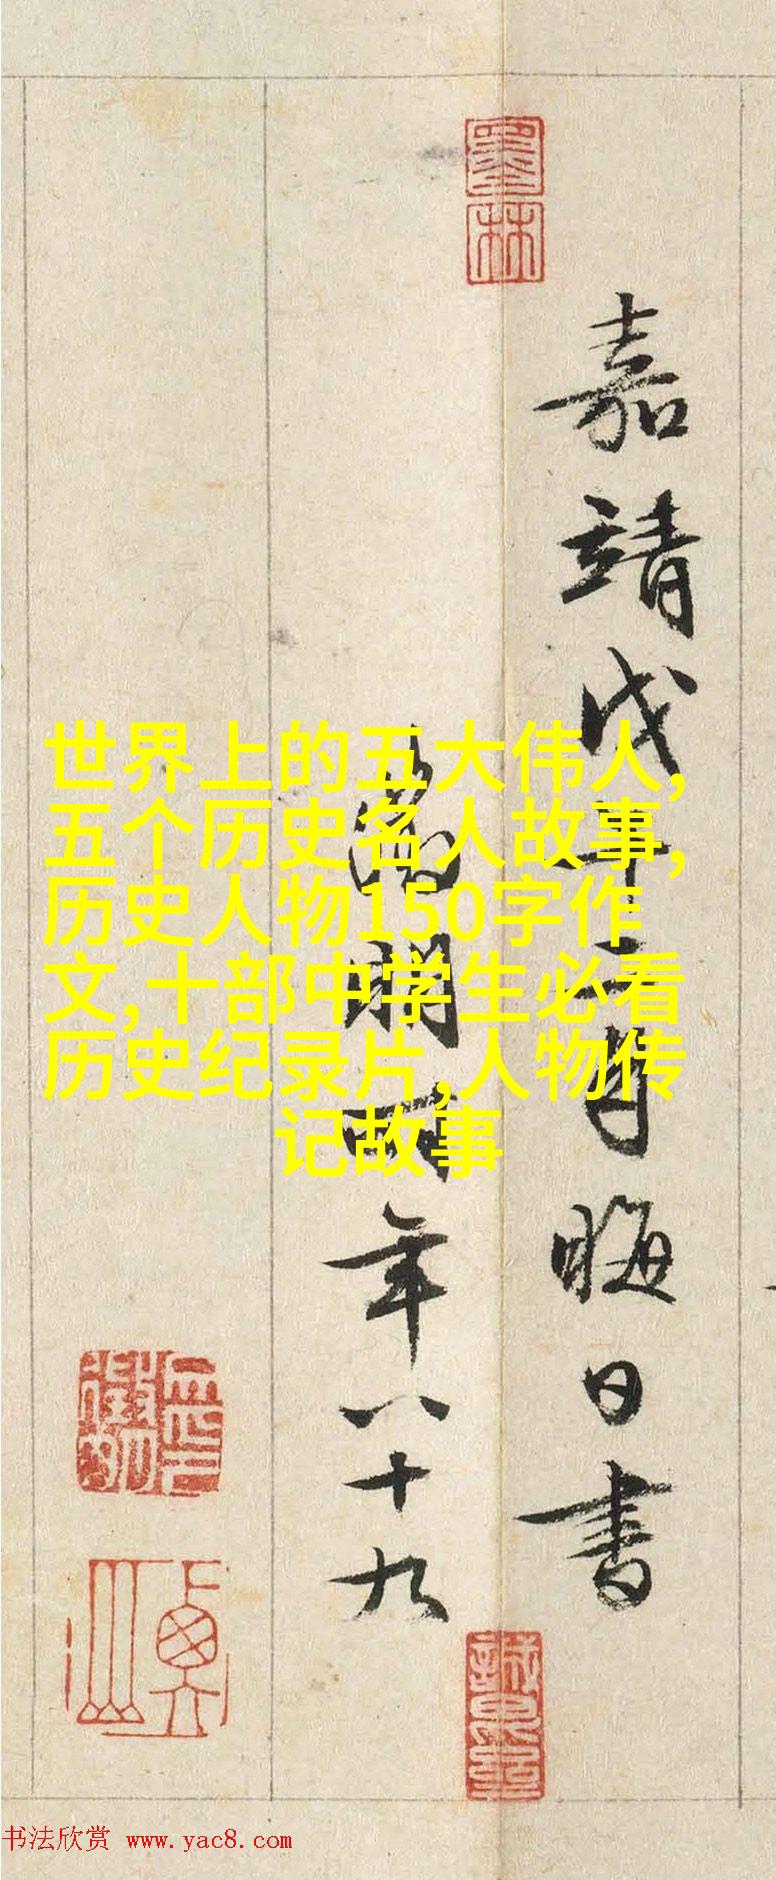 墨林
嘉靖戊午二月晦日書
徵明年八十九
世界上的五大伟人,
五个历史名人故事,
历史人物150字作
文,十部中学生必看
历史纪录片,人物传
记故事
书法欣赏 www.yac8.com